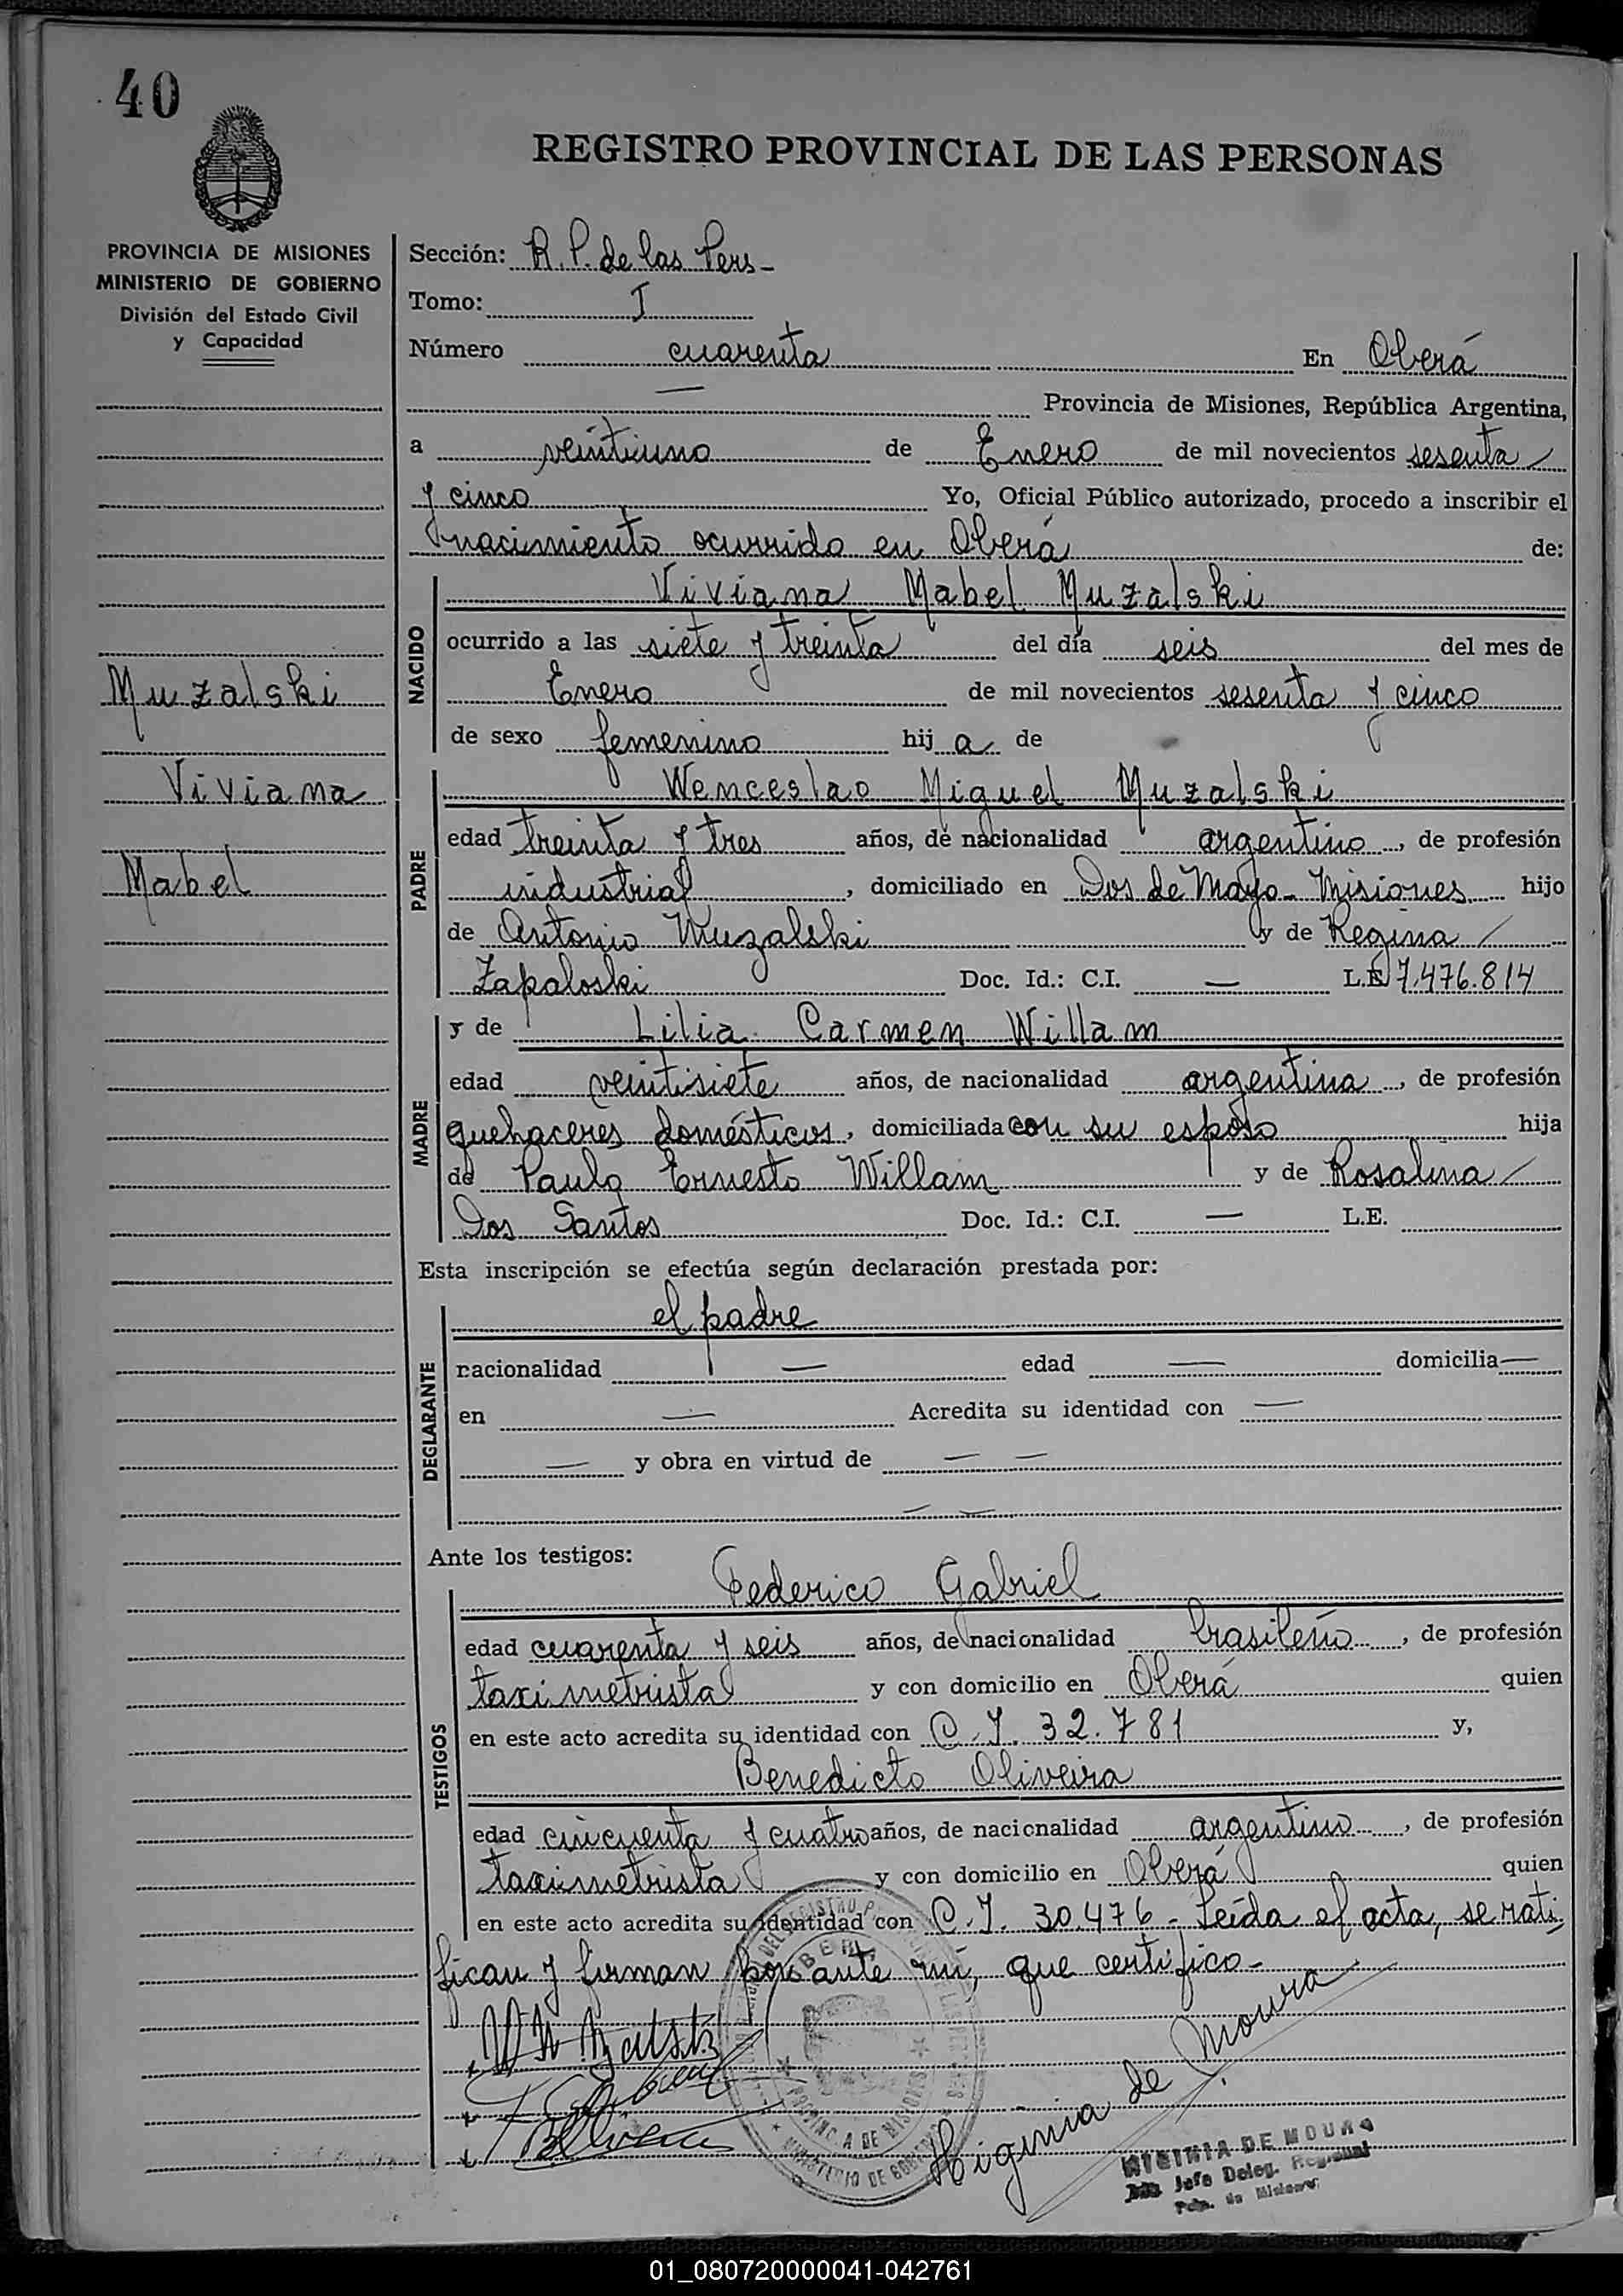 40
REGISTRO PROVINCIAL DE LAS PERSONAS
PROVINCIA DE MISIONES
MINISTERIO DE GOBIERNO
División del Estado Civil
y Capacidad
Muzalski
Viviana
Mabel
Sección: R. P. de las Pers-
Tomo: I
Número cuarenta En Oberá
— Provincia de Misiones, República Argentina,
a veintiuno de Enero de mil novecientos sesenta
y cinco Yo, Oficial Público autorizado, procedo a inscribir el
nacimiento ocurrido en Oberá de:
NACIDO
Viviana Mabel Muzalski
ocurrido a las siete y treinta del día seis del mes de
Enero de mil novecientos sesenta y cinco
de sexo femenino hij a de
PADRE
Wenceslao Miguel Muzalski
edad treinta y tres años, de nacionalidad argentino, de profesión
industrial, domiciliado en Dos de Mayo - Misiones hijo
de Antonio Muzalski y de Regina
Zapaloski Doc. Id.: C.I. — L.E 7.476.814
MADRE
y de Lilia Carmen Willam
edad veintisiete años, de nacionalidad argentina, de profesión
quehaceres domésticos, domiciliada con su esposo hija
de Paulo Ernesto Willam y de Rosalina
Dos Santos Doc. Id.: C.I. — L.E.
Esta inscripción se efectúa según declaración prestada por:
DECLARANTE
el padre
nacionalidad — edad — domicilia—
en — Acredita su identidad con —
— y obra en virtud de — —
— —
Ante los testigos:
TESTIGOS
Federico Gabriel
edad cuarenta y seis años, de nacionalidad brasileño, de profesión
taximetrista y con domicilio en Oberá quien
en este acto acredita su identidad con C.I. 32.781 y,
Benedicto Oliveira
edad cincuenta y cuatro años, de nacionalidad argentino, de profesión
taximetrista y con domicilio en Oberá quien
en este acto acredita su identidad con C.I. 30.476 - Leída el acta, se rati
fican y firman por ante mí, que certifico-
Higinia de Moura
HIGINIA DE MOURA
Jefe Deleg. Regional
Pcia. de Misiones
OBERA
PROVINCIA DE MISIONES
MINISTERIO DE GOBIERNO
01_080720000041-042761